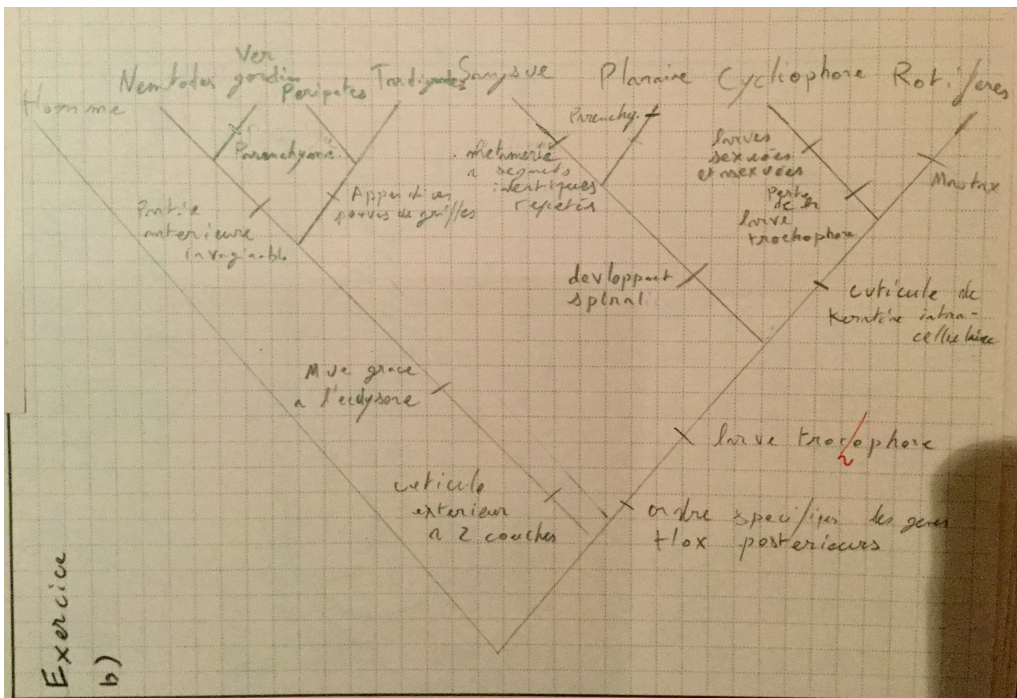 Homme
Nematodes
Ver
gordien
Peripates
Tardigrades
Sangsue
Planaire
Cycliophore
Rotifères
Parenchyme.
Parenchy.
Partie
anterieure
invaginable
Appendices
pourvus de griffes
metamerie
a segments
identiques
repetés
larves
sexuées
et asexuées
Perte
de la
larve
trochophore
Mastax
devloppant
spiral
cuticule de
Keratine intra-
cellulaire
Mue grace
a l'ecdysone
larve trocophore
h
cuticule
exterieur
a 2 couches
ordre specifique des genes
Hox posterieurs
Exercice
b)